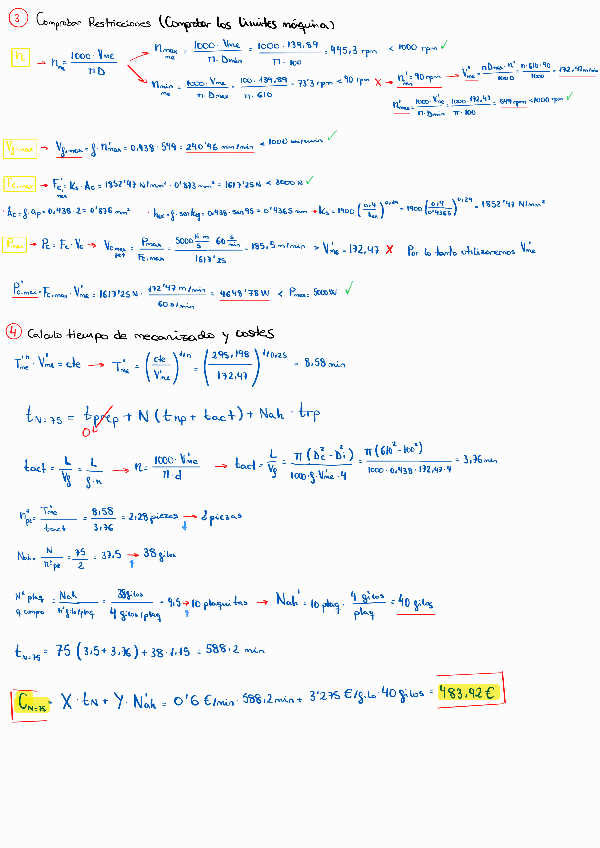 3 Comprobar Restricciones (Comprobar los límites máquina)
n → n_me = 1000 · V_ME / π D → n_max me = 1000 · V_ME / π · D_min = 1000 · 139,89 / π · 100 = 445,3 rpm < 1000 rpm ✓
→ n_min me = 1000 · V_ME / π · D_max = 100 · 139,89 / π · 610 = 73'3 rpm < 90 rpm ✗ → n'_min = 90 rpm → V'_me = π D_max · n' / 1000 = π · 610 · 90 / 1000 = 172,47 m/min
n'_max = 1000 · V'_me / π · D_min = 1000 · 172,47 / π · 100 = 549 rpm < 1000 rpm ✓
V_f,max → V_f,max = f · n'_max = 0,438 · 549 = 240'46 mm/min < 1000 mm/min ✓
F_c,max → F_c = K_s · A_c = 1852'47 N/mm² · 0'873 mm² = 1617'25 N < 3000 N ✓
· A_c = f · a_p = 0,438 · 2 = 0'876 mm² · h_ex = f · sen k_g = 0,438 · sen 95 = 0'4365 mm → K_s = 1900 (0,4 / h_ex)^0,24 = 1900 (0,4 / 0'4365)^0,24 = 1852'47 N/mm²
P_max → P_c = F_c · V_c → V_c max pot = P_max / F_c,max = 5000 N·m/s · 60 s/min / 1617'25 = 185,5 m/min > V'_me = 172,47 ✗ Por lo tanto utilizaremos V'_me
P'_c,max = F_c,max · V'_me = 1617'25 N · 172'47 m/min / 60 s/min = 4648'78 W < P_max = 5000 W ✓
4 Calculo tiempo de mecanizado y costes
T'_me^n · V'_me = cte → T'_me = (cte / V'_me)^1/n = (295,198 / 172,47)^1/0,25 = 8,58 min
t_N=75 = t_prep 0 + N (t_np + t_act) + Nah · t_rp
t_act = L / V_f = L / f · n → n = 1000 · V'_me / π · d → t_act = L / V_f = π (D_e² − D_i²) / 1000 · f · V'_me · 4 = π (610² − 100²) / 1000 · 0,438 · 172,47 · 4 = 3,76 min
nº pe = T'_me / t_act = 8,58 / 3,76 = 2,28 piezas → 2 piezas
Nah = N / nº pe = 75 / 2 = 37,5 → 38 filos
Nº plaq a compra = Nah / nº filo/plaq = 38 filos / 4 filos/plaq = 9,5 → 10 plaquitas → Nah' = 10 plaq · 4 filos / plaq = 40 filos
t_N=75 = 75 (3,5 + 3,76) + 38 · 1,15 = 588,2 min
C_N=75 = X · t_N + Y · N'ah = 0'6 €/min · 588,2 min + 3'275 €/filo · 40 filos = 483,92 €